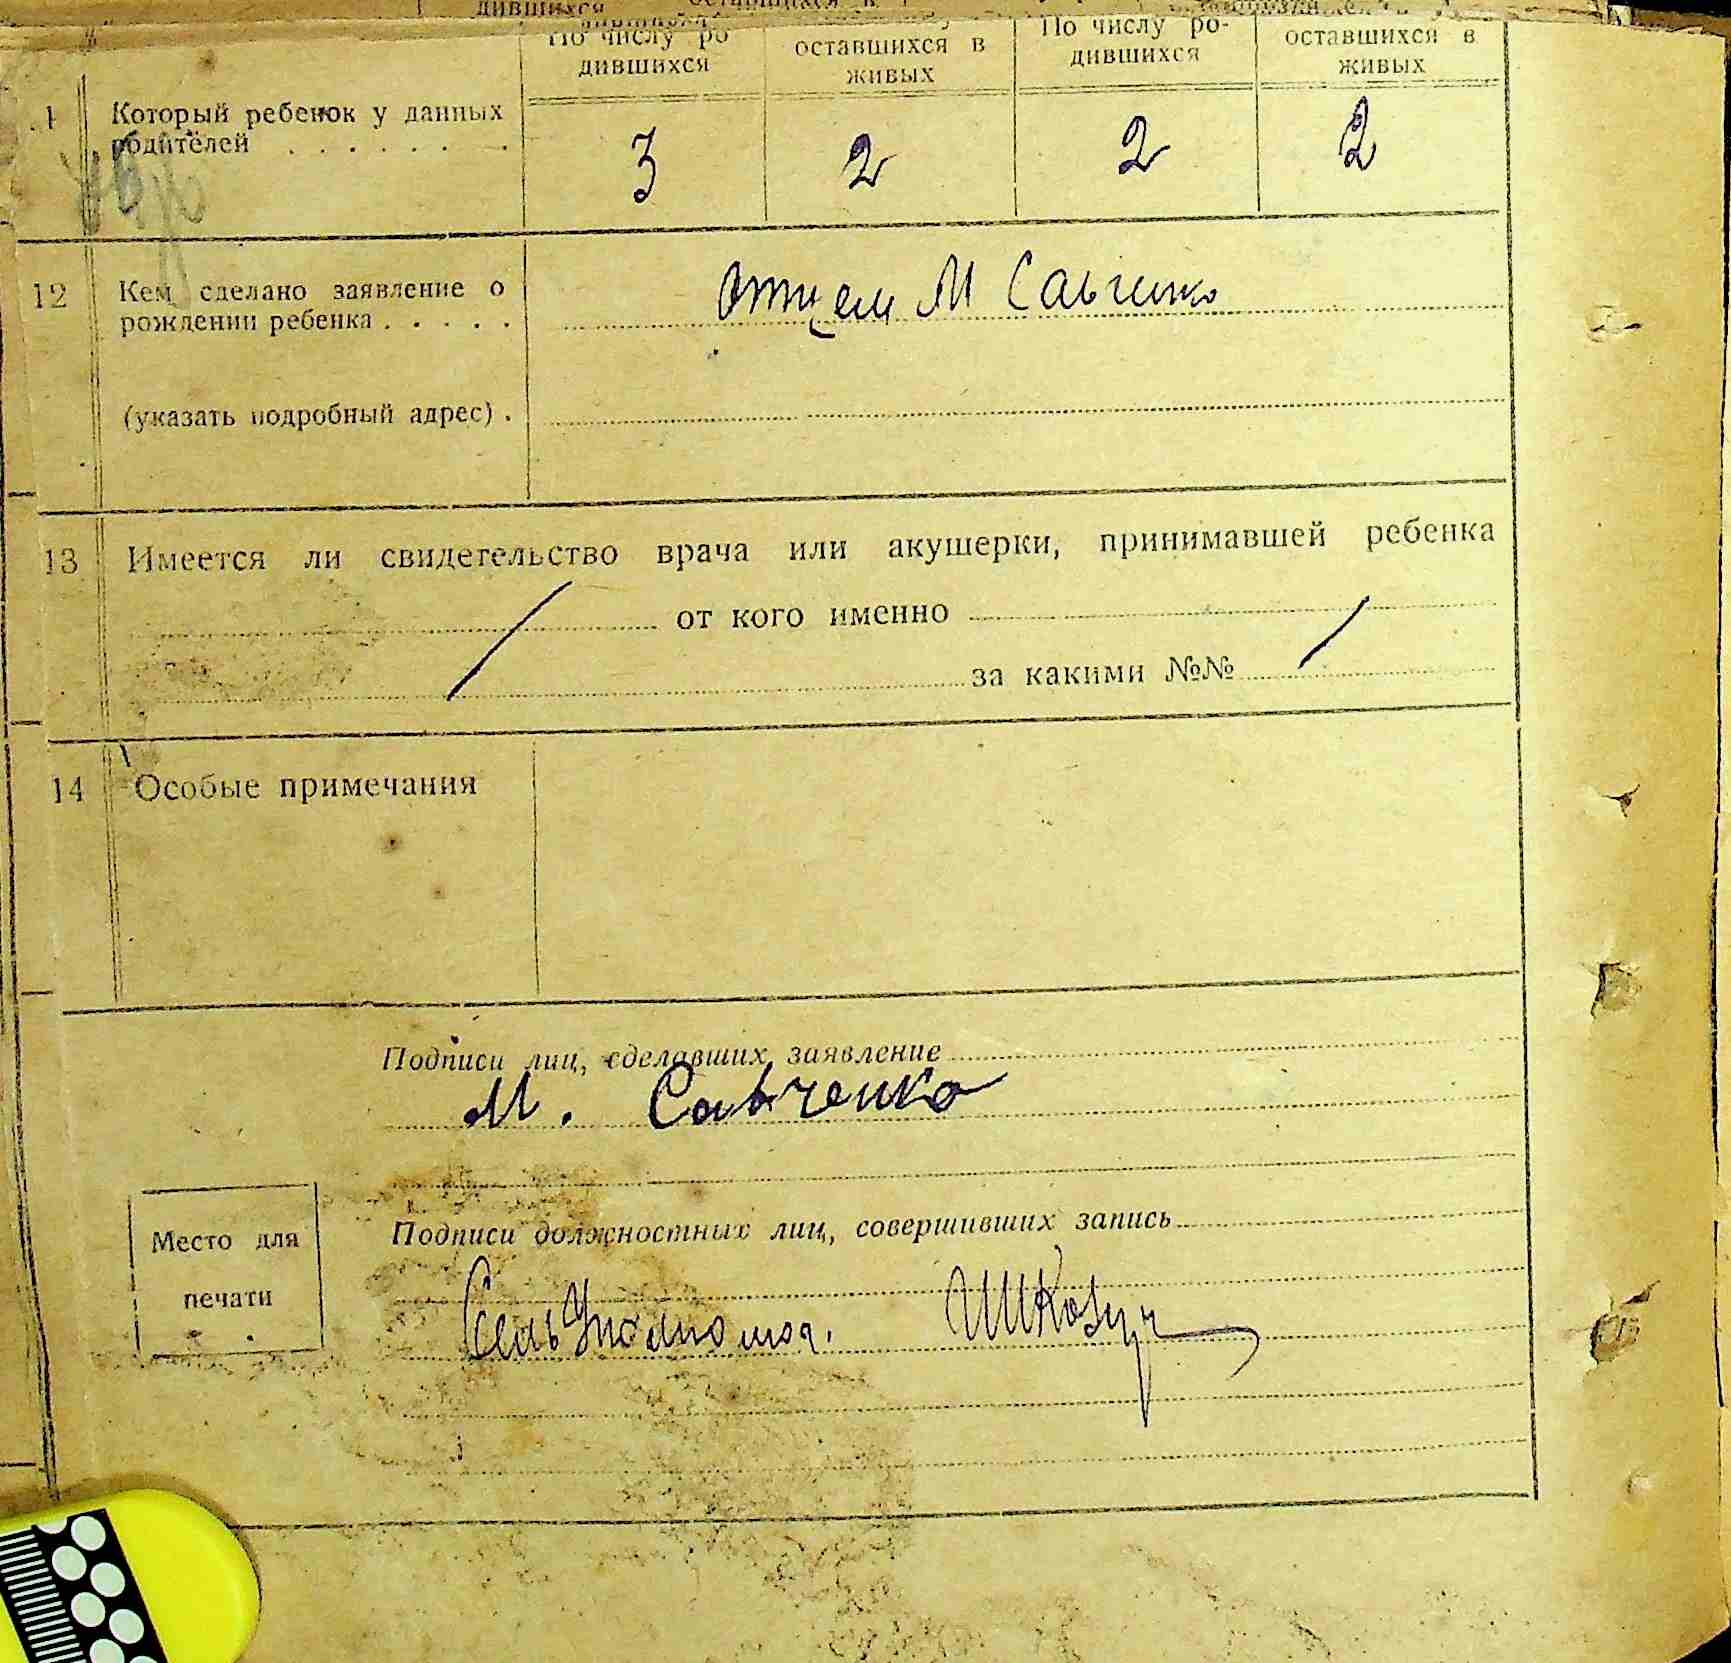 По числу ро-
дившихся
оставшихся в
живых
По числу ро-
дившихся
оставшихся в
живых
Который ребенок у данных
родителей . . . . . . .
3 2 2 2
12 Кем сделано заявление о
рождении ребенка . . . . .
Отцем М Савченко
(указать подробный адрес) .
13 Имеется ли свидетельство врача или акушерки, принимавшей ребенка
от кого именно
за какими №№
14 Особые примечания
Подписи лиц, сделавших заявление
М. Савченко
Место для
печати
Подписи должностных лиц, совершивших запись